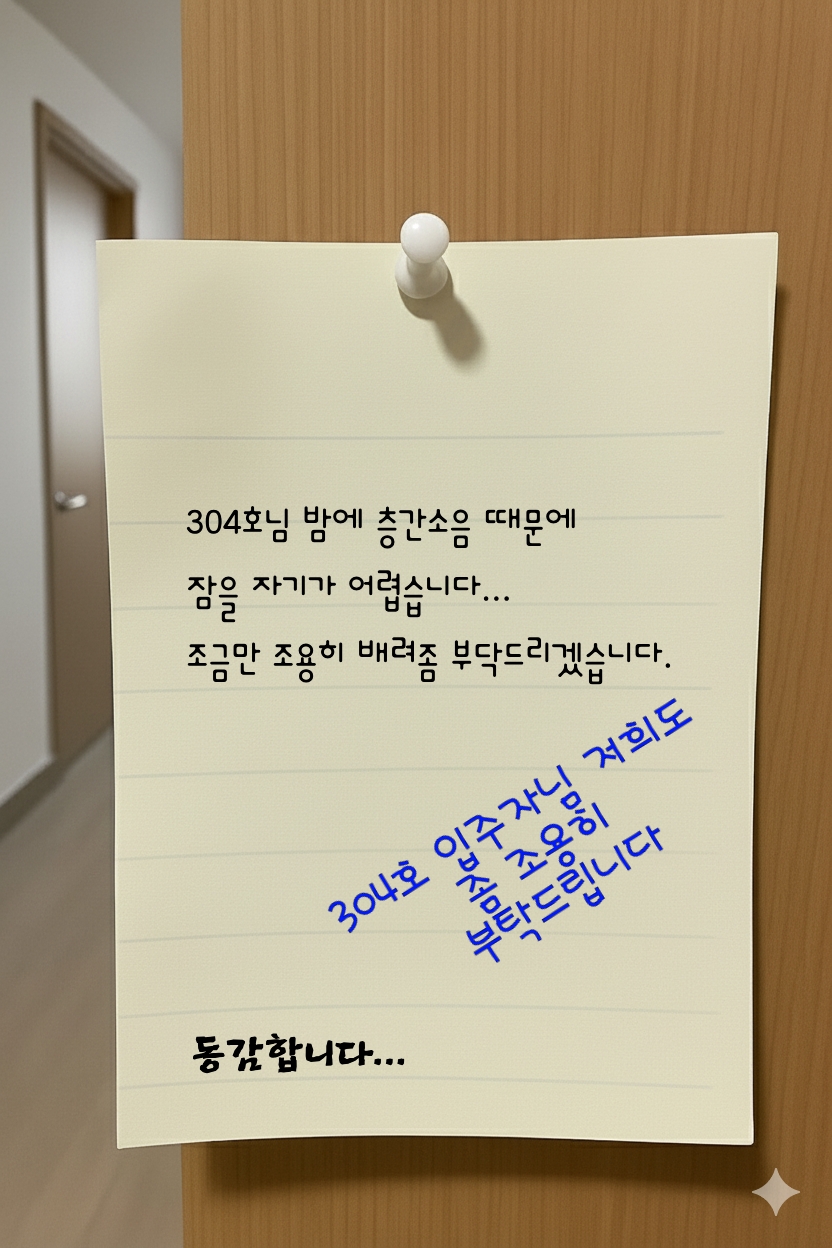 304호님 밤에 층간소음 때문에
잠을 자기가 어렵습니다...
조금만 조용히 배려좀 부닥드리겠습니다.
304호 입주자님 저희도
좀 조용히
부탁드립니다
동감합니다...